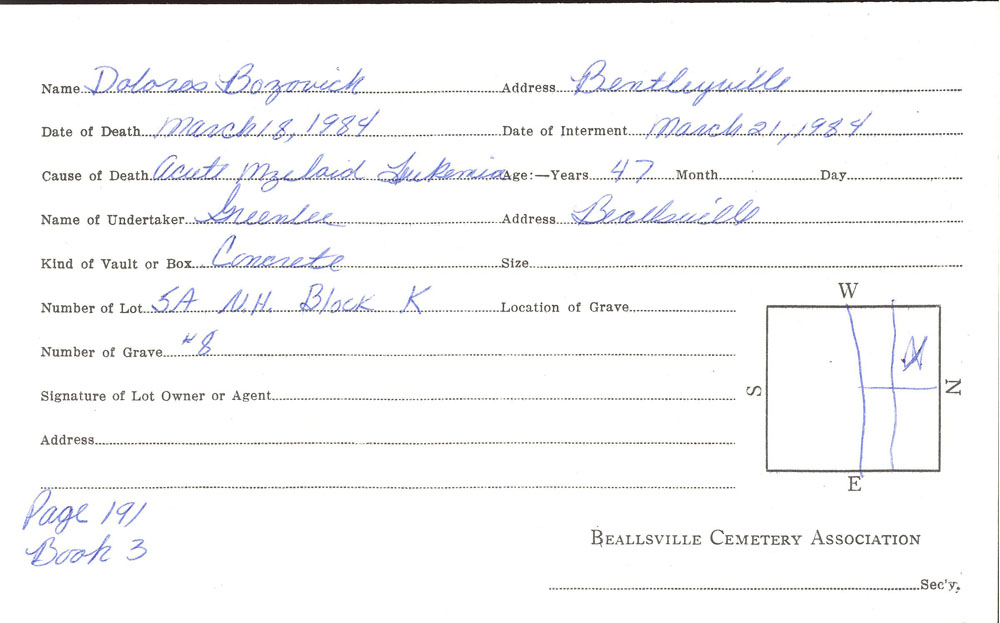 Name Dolores Bozovich Address Bentleyville
Date of Death March 18, 1984 Date of Interment March 21, 1984
Cause of Death Acute Myeloid Leukemia Age:—Years 47 Month Day
Name of Undertaker Greenlee Address Beallsville
Kind of Vault or Box Concrete Size
Number of Lot 5A N.H. Block K Location of Grave
W
Number of Grave #8
S
N
Signature of Lot Owner or Agent
Address
E
Page 191
Book 3
BEALLSVILLE CEMETERY ASSOCIATION
Sec'y.